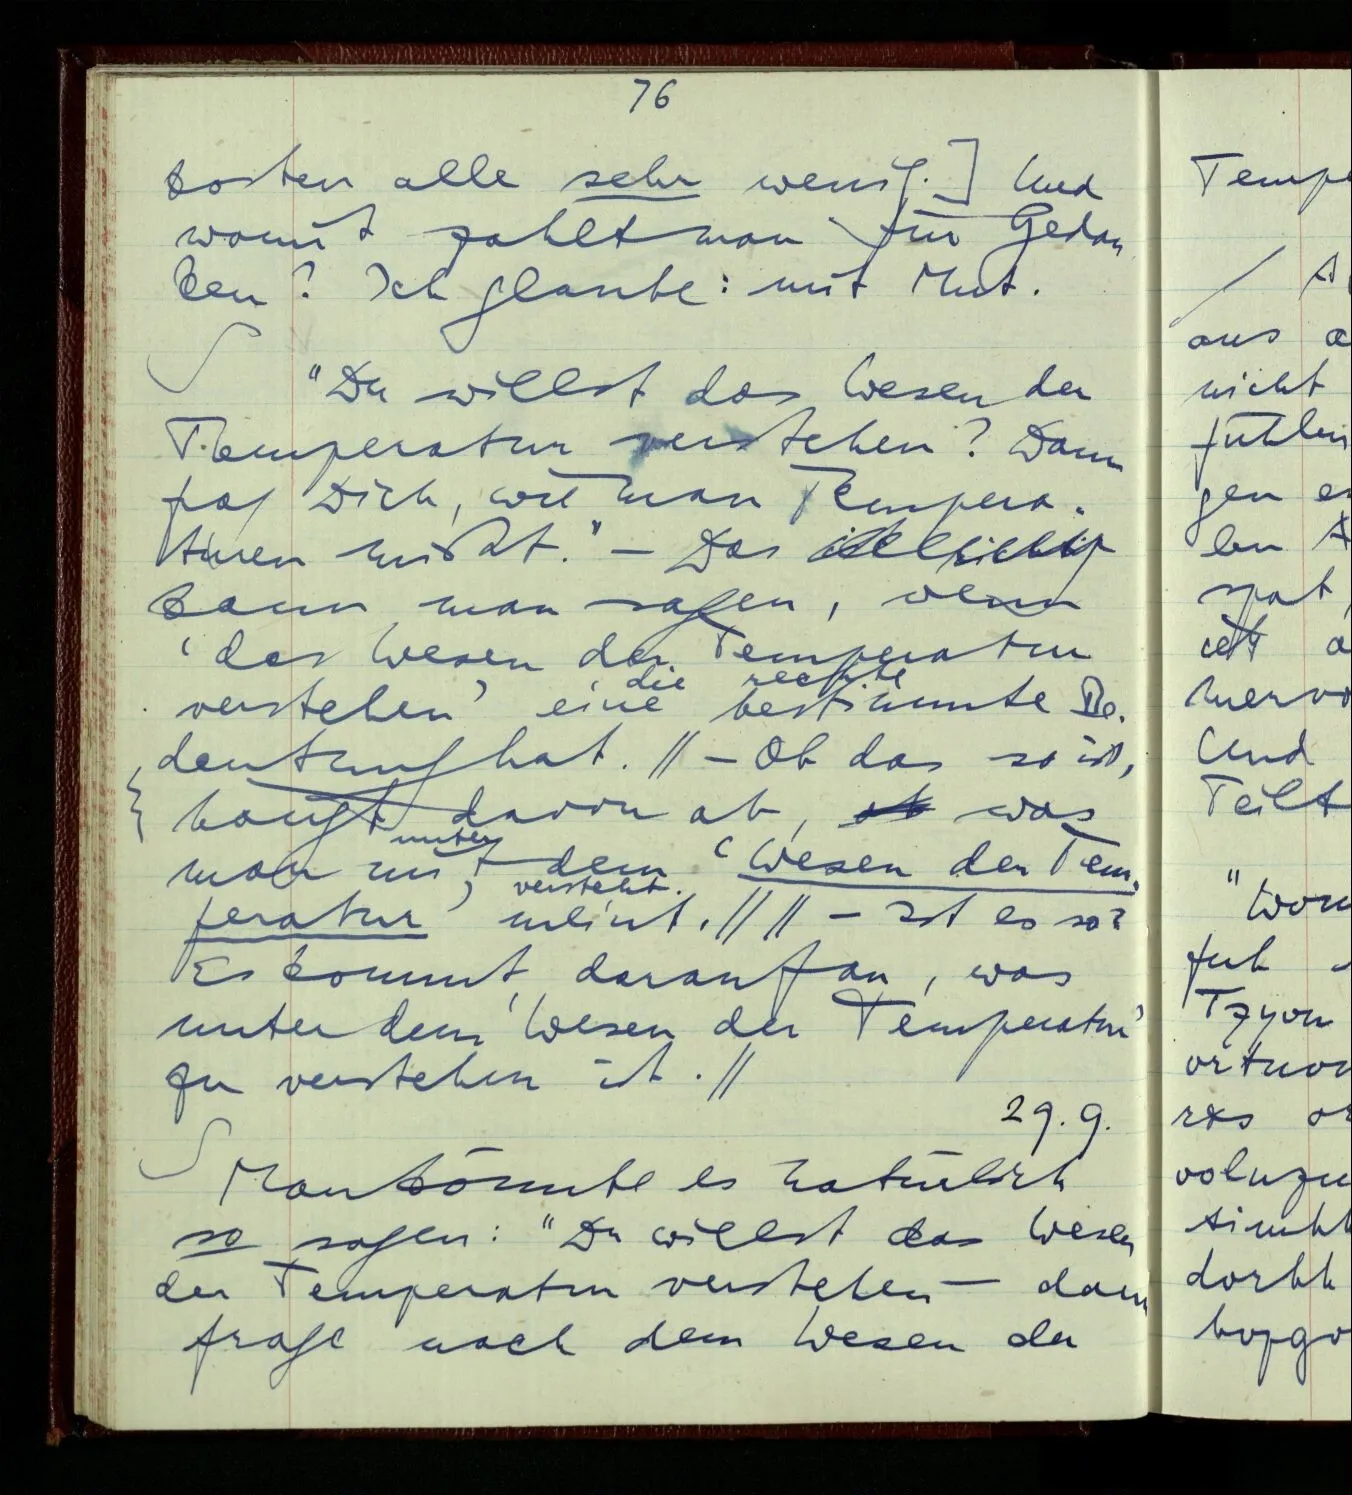 76
kosten alle sehr wenig.] Und
womit zahlt man für Gedan
ken? Ich glaube: mit Mut.
"Du willst das Wesen der
Temperatur verstehen? Dann
frag Dich, wie man Tempera-
turen mißt." – Das ist richtig
kann man sagen, wenn
'das Wesen der Temperatur
die rechte
verstehen' eine bestimmte Be-
deutung hat. // – Ob das so ist,
hängt davon ab, ob was
unter
man mit dem 'Wesen der Tem-
versteht.
peratur' meint. // // – Ist es so?
Es kommt darauf an, was
unter dem 'Wesen der Temperatur'
zu verstehen ist. //
29.9.
Man könnte es natürlich
so sagen: "Du willst das Wesen
der Temperatur verstehen – dann
frage nach dem Wesen der
Tempe
aus
nicht
fühlen
gen
ben
Und
Teilt
"Wom
Tzyon
rxs
dorhh